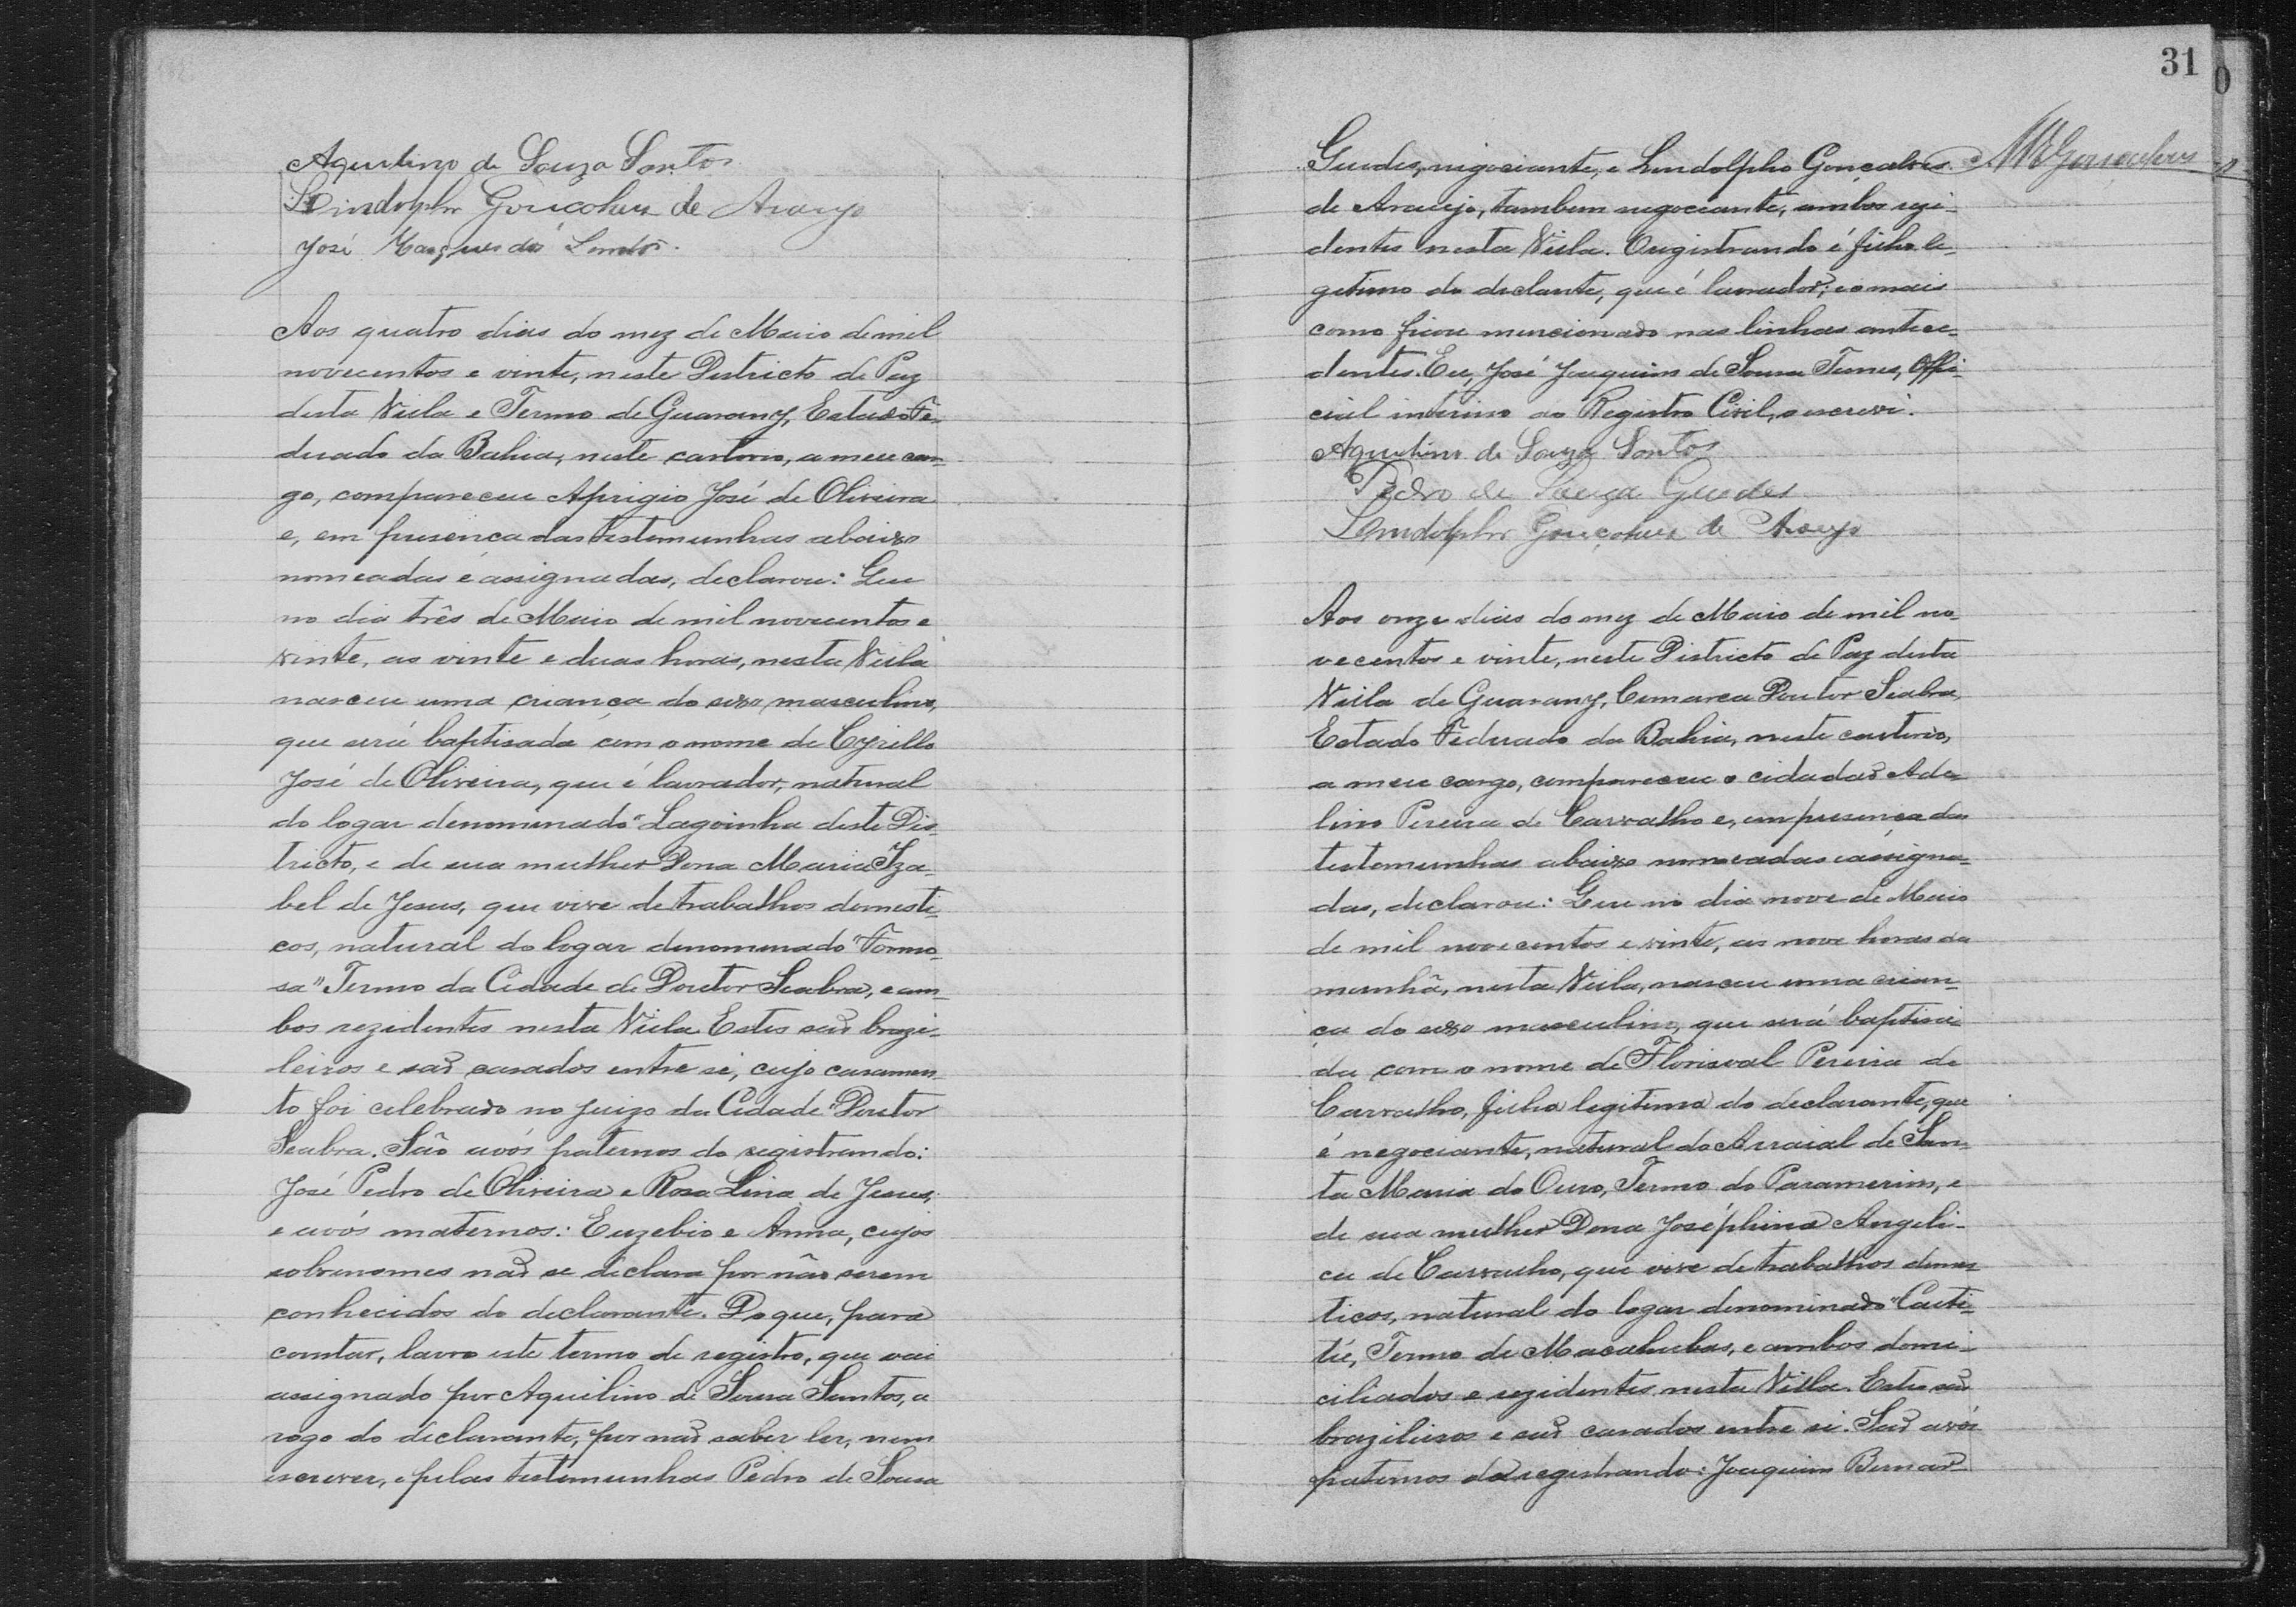 Aquilino de Souza Santos
Lindolpho Gonçalves de Araujo
José Marques dos Santos
Aos quatro dias do mez de Maio de mil
novecentos e vinte, neste Districto de Paz
desta Villa e Termo de Guarany, Estado Fe-
derado da Bahia, neste cartorio, a meu car-
go, compareceu Aprigio José de Oliveira
e, em presença das testemunhas abaixo
nomeadas e assignadas, declarou: Que
no dia três de Maio de mil novecentos e
vinte, as vinte e duas horas, nesta Villa
nasceu uma criança do sexo masculino,
que será baptisada com o nome de Cyrillo
José de Oliveira, que é lavrador, natural
do logar denominado "Lagoinha deste Dis-
tricto, e de sua mulher Dona Maria Iza-
bel de Jesus, que vive de trabalhos domesti-
cos, natural do logar denominado "Formo-
sa" Termo da Cidade de Doutor Seabra, e am-
bos rezidentes nesta Villa. Estes são brazi-
leiros e são casados entre si, cujo casamen-
to foi celebrado no juizo da Cidade "Doutor
Seabra. São avós paternos do registrando:
José Pedro de Oliveira e Rosa Lina de Jesus;
e avós maternos: Euzebio e Anna, cujos
sobrenomes não se declara por não serem
conhecidos do declarante. Do que, para
constar, lavro este termo de registro, que vai
assignado por Aquilino de Sousa Santos, a
rogo do declarante, por não saber ler, nem
escrever, e pelas testemunhas Pedro de Sousa
31
Guedes, nigociante, e Lindolpho Gonçalves
de Araujo, tambem negociante, ambos rezi-
dentes nesta Villa. O registrando é filho le-
getimo do declante, que é lavrador; e o mais
como ficou mencionado nas linhas antece-
dentes. Eu, José Joaquim de Sousa Tunes, Offi-
cial interino do Registro Civil, o escrevi.
Aquilino de Souza Santos
Pedro de Souza Guedes
Lindolpho Gonçalves de Araujo
Aos onze dias do mez de Maio de mil no-
vecentos e vinte, neste Districto de Paz desta
Villa de Guarany, Comarca Doutor Seabra,
Estado Federado da Bahia, neste cartorio,
a meu cargo, compareceu o cidadão Ade-
lino Pereira de Carvalho e, em presença das
testemunhas abaixo nomeadas e assigna-
das, declarou: Que no dia nove de Maio
de mil novecentos e vinte, as nove horas da
manhã, nesta Villa, nasceu uma crian-
ça do sexo masculino, que será baptisa-
da com o nome de Florisval Pereira de
Carvalho, filho legitimo do declarante, que
é negociante, natural do Arraial de San-
ta Maria do Ouro, Termo do Paramerim, e
de sua mulher Dona Joséphina Angeli-
ca de Carvalho, que vive de trabalhos domes
ticos, natural do logar denominado "Caiti-
té, Termo de Macahubas, e ambos domi-
ciliados e rezidentes nesta Villa. Estes são
brazileiros e são casados entre si. São avós
paternos do registrando: Joaquim Bernar-